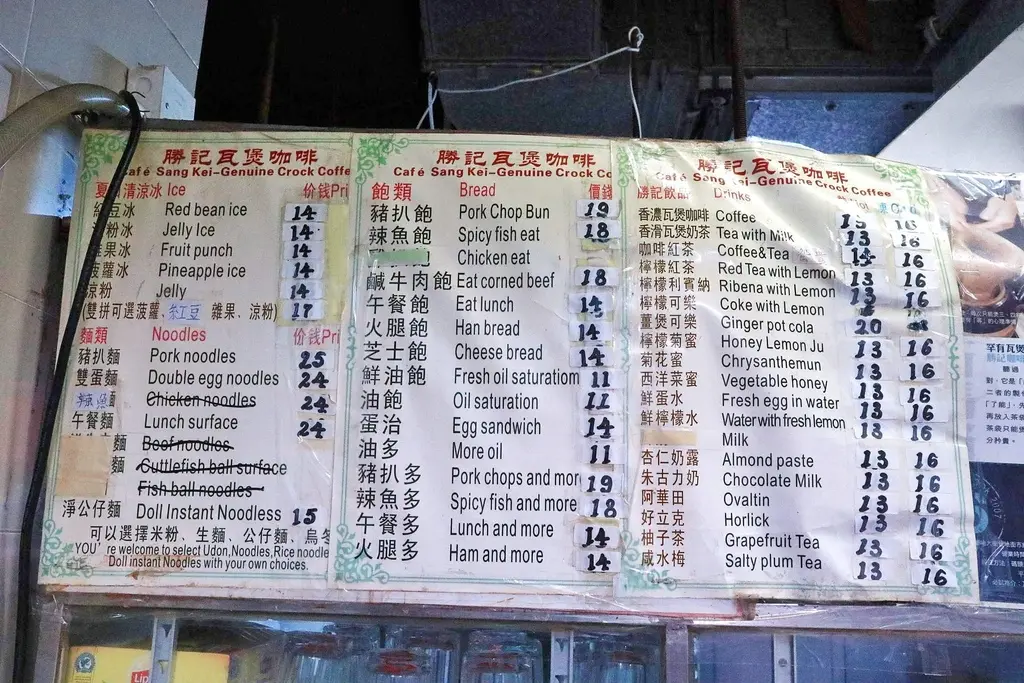 勝記瓦煲咖啡
Café Sang Kei-Genuine Crock Coffe
夏 清涼冰 Ice 价钱Pri
豆冰 Red bean ice 14
粉冰 Jelly Ice 14
果冰 Fruit punch 14
菠蘿冰 Pineapple ice 14
涼粉 Jelly 14
(雙拼可選菠蘿、紅豆、雜果、涼粉) 17
麵類 Noodles 价钱Pri
豬扒麵 Pork noodles 25
雙蛋麵 Double egg noodles 24
辣魚 Chicken noodles 24
午餐麵 Lunch surface 24
麵 Beef noodles
麵 Cuttlefish ball surface
Fish ball noodles
淨公仔麵 Doll Instant Noodless 15
可以選擇米粉、生麵、公仔麵、烏冬
YOU're welcome to select Udon,Noodles,Rice noodle
Doll instant Noodles with your own choices.
勝記瓦煲咖啡
Café Sang Kei-Genuine Crock Co
飽類 Bread 價錢
豬扒飽 Pork Chop Bun 19
辣魚飽 Spicy fish eat 18
Chicken eat
鹹牛肉飽 Eat corned beef 18
午餐飽 Eat lunch 14
火腿飽 Han bread 14
芝士飽 Cheese bread 14
鮮油飽 Fresh oil saturation 11
油飽 Oil saturation 11
蛋治 Egg sandwich 14
油多 More oil 11
豬扒多 Pork chops and mor 19
辣魚多 Spicy fish and more 18
午餐多 Lunch and more 14
火腿多 Ham and more 14
勝記瓦煲咖啡
Café Sang Kei-Genuine Crock Coffee
勝記飲品 Drinks
香濃瓦煲咖啡 Coffee 13 16
香滑瓦煲奶茶 Tea with Milk 13 16
咖啡紅茶 Coffee&Tea 14 16
檸檬紅茶 Red Tea with Lemon 13 16
檸檬利賓納 Ribena with Lemon 13 16
檸檬可樂 Coke with Lemon 16
薑煲可樂 Ginger pot cola 20
檸檬菊蜜 Honey Lemon Ju 13 16
菊花蜜 Chrysanthemun 13 16
西洋菜蜜 Vegetable honey 13 16
鮮蛋水 Fresh egg in water 13 16
鮮檸檬水 Water with fresh lemon 13 16
Milk
杏仁奶露 Almond paste 13 16
朱古力奶 Chocolate Milk 13 16
阿華田 Ovaltin 13 16
好立克 Horlick 13 16
柚子茶 Grapefruit Tea 13 16
咸水梅 Salty plum Tea 13 16
罕有瓦煲
勝記咖啡
Lip